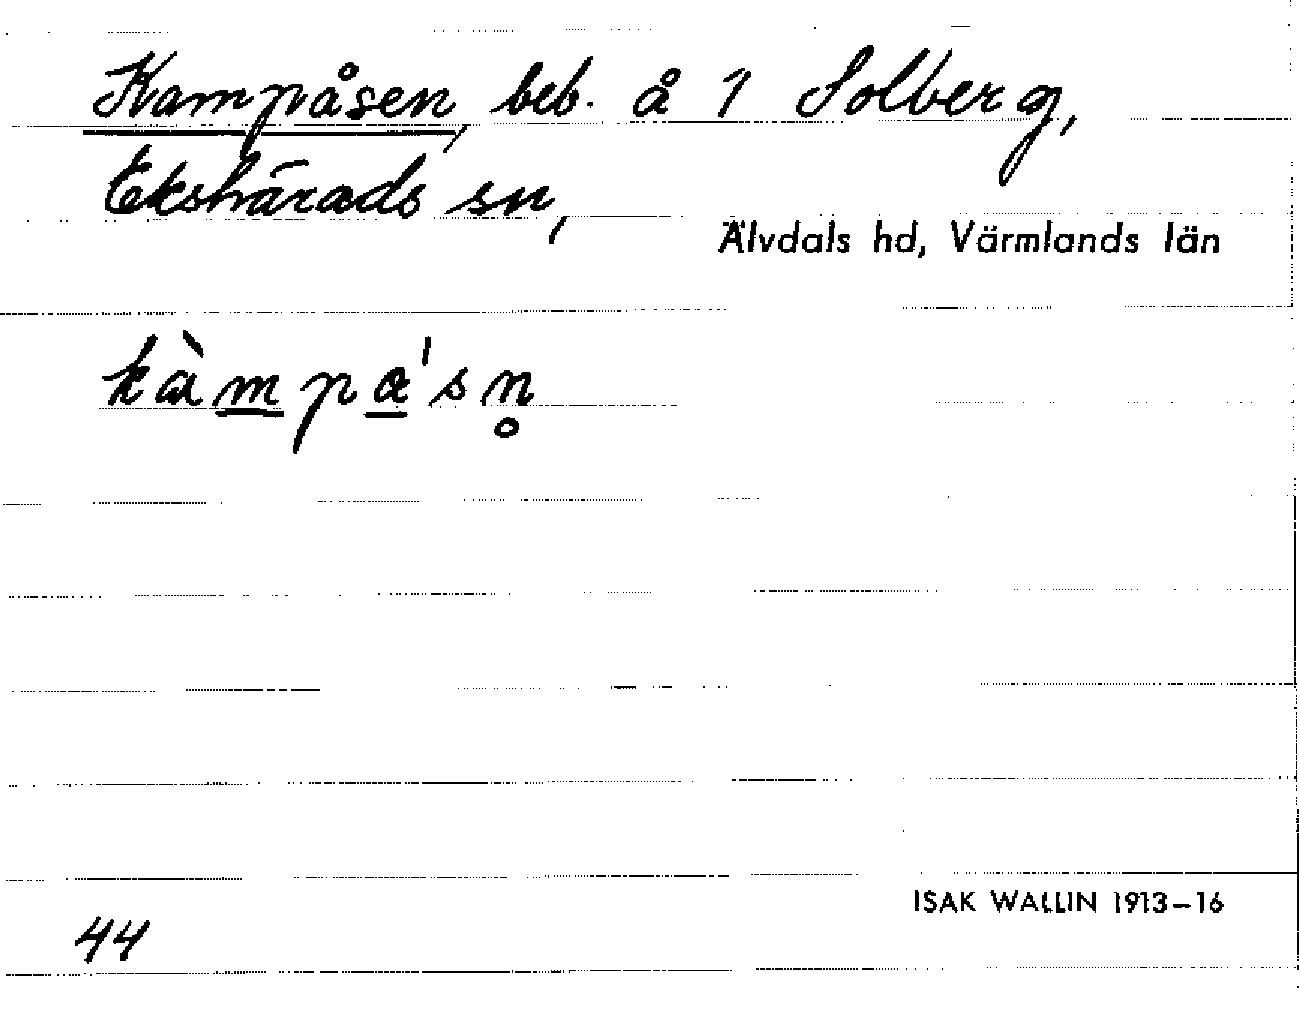 Kampåsen, beb. å 1 Solberg,
Ekshärads sn,
Älvdals hd, Värmlands län
kàmpa'sn̥
ISAK WALLIN 1913–16
44